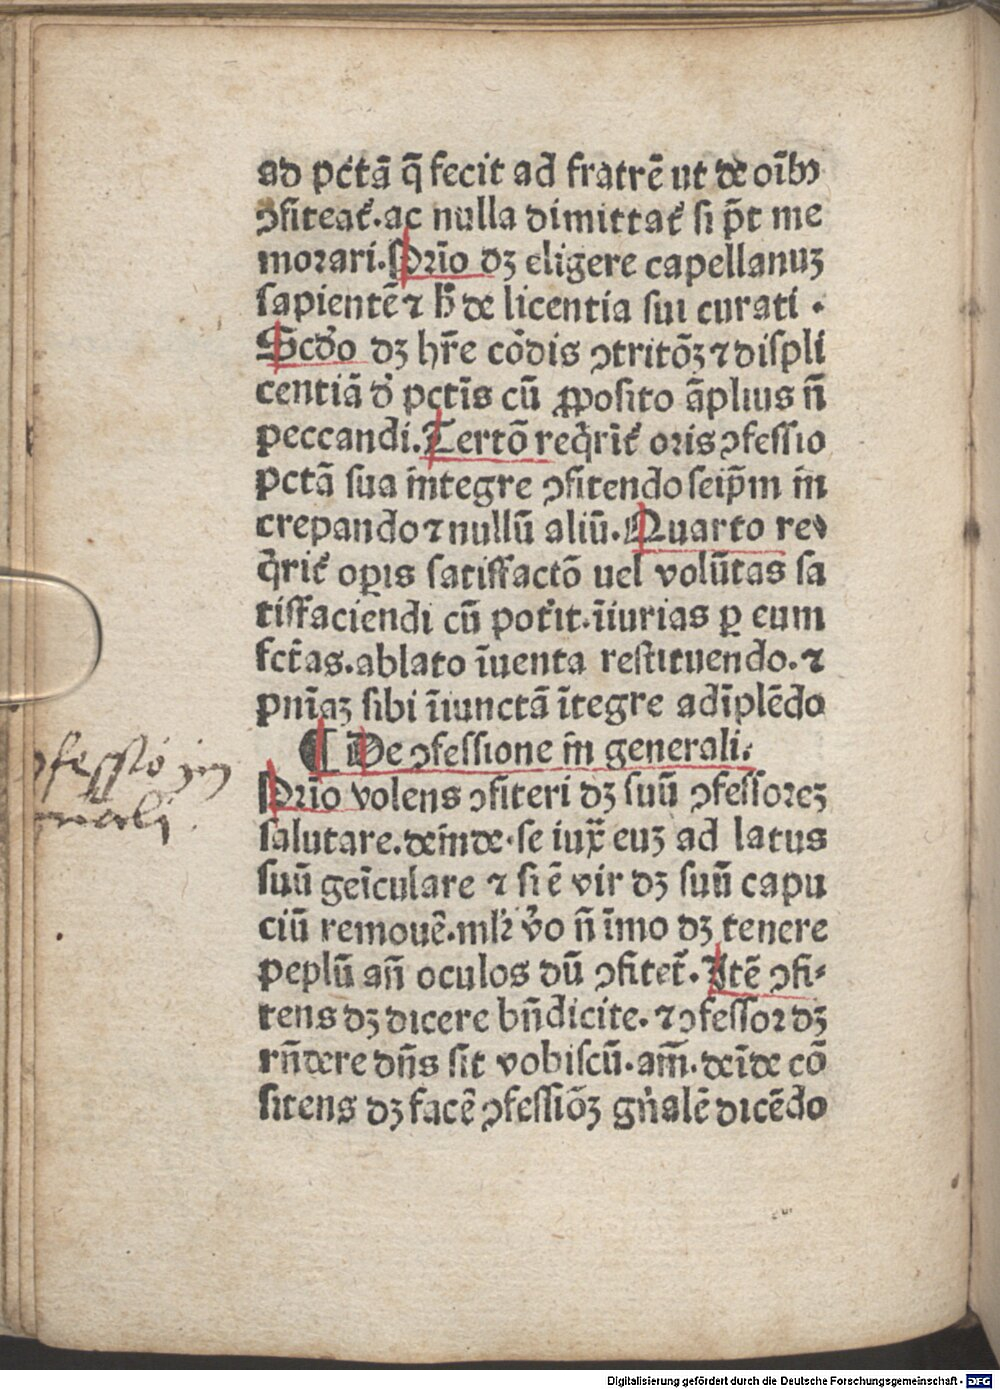 ad pctā q̄ fecit ad fratrē ut de oībꝰ
ꝯfiteat᷑. ac nulla dimittat᷑ si p̄t me
morari. Prīo dꝫ eligere capellanuꝫ
sapientē ⁊ ħ de licentia sui curati .
Scd̓o dꝫ hr̄e cōdis ꝯtritōꝫ ⁊ displi
centiā d̓ pctīs cū ꝓposito āplius n̄
peccandi. Tertō req̓rit᷑ oris ꝯfessio
pctā sua integre ꝯfitendo seip̄m in
crepando ⁊ nullū aliū. Quarto re⸗
q̓rit᷑ oꝑis satisfactō uel volūtas sa
tisfaciendi cū pot̓it. īiurias ꝑ eum
fct̄as. ablato īuenta restituendo. ⁊
pnīaꝫ sibi īiunctā ītegre adīplēdo
¶ De ꝯfessione in generali.
Prīo volens ꝯfiteri dꝫ suū ꝯfessoreꝫ
salutare. deinde. se iux̄ euꝫ ad latus
suū geīculare ⁊ si ē vir dꝫ suū capu
ciū remouē. ml̓r v̓o n̄ īmo dꝫ tenere
peplū an̄ oculos dū ꝯfitet᷑. Itē ꝯfi⸗
tens dꝫ dicere bn̄dicite. ⁊ ꝯfessor dꝫ
rn̄dere dn̄s sit vobiscū. am̄. deīde cō
fitens dꝫ facē ꝯfessiōꝫ gn̓alē dicēdo
ꝯfessio in
nerali.
Digitalisierung gefördert durch die Deutsche Forschungsgemeinschaft - DFG